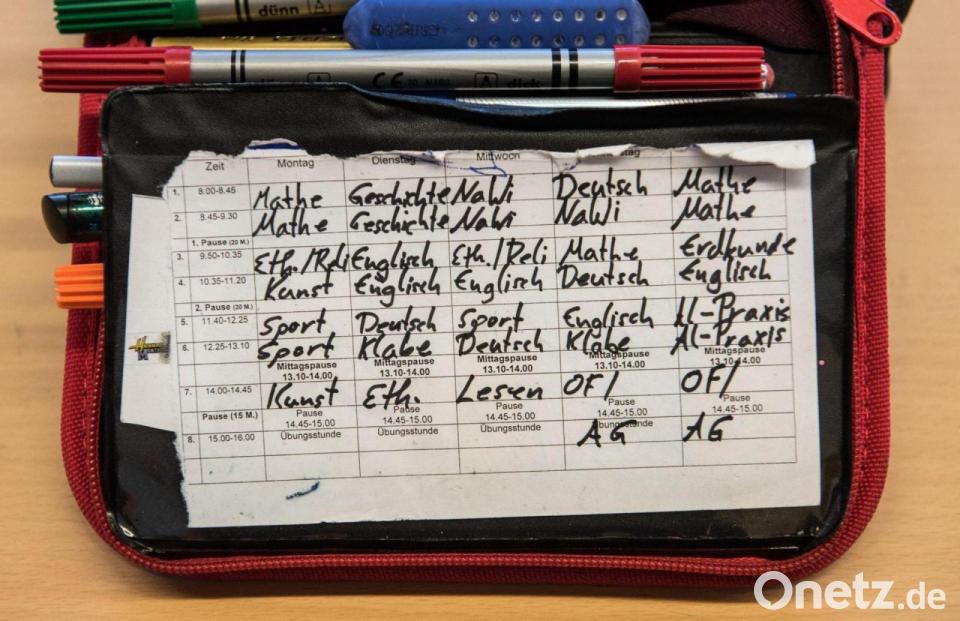 dünn A
A dick
Zeit Montag Dienstag Mittwoch
1. 8.00-8.45 Mathe Geschichte NaWi Deutsch Mathe
2. 8.45-9.30 Mathe Geschichte NaWi NaWi Mathe
1. Pause (20 M.)
3. 9.50-10.35 Eth./Reli Englisch Eth./Reli Mathe Erdkunde
4. 10.35-11.20 Kunst Englisch Englisch Deutsch Englisch
2. Pause (20 M.)
5. 11.40-12.25 Sport Deutsch Sport Englisch Al-Praxis
6. 12.25-13.10 Sport Klabe Deutsch Klabe Al-Praxis
Mittagspause Mittagspause Mittagspause Mittagspause Mittagspause
13.10-14.00 13.10-14.00 13.10-14.00 13.10-14.00 13.10-14.00
7. 14.00-14.45 Kunst Eth. Lesen OF/ OF/
Pause (15 M.) Pause Pause Pause Pause Pause
14.45-15.00 14.45-15.00 14.45-15.00 14.45-15.00 14.45-15.00
8. 15.00-16.00 Übungsstunde Übungsstunde Übungsstunde Übungsstunde
AG AG
Onetz.de